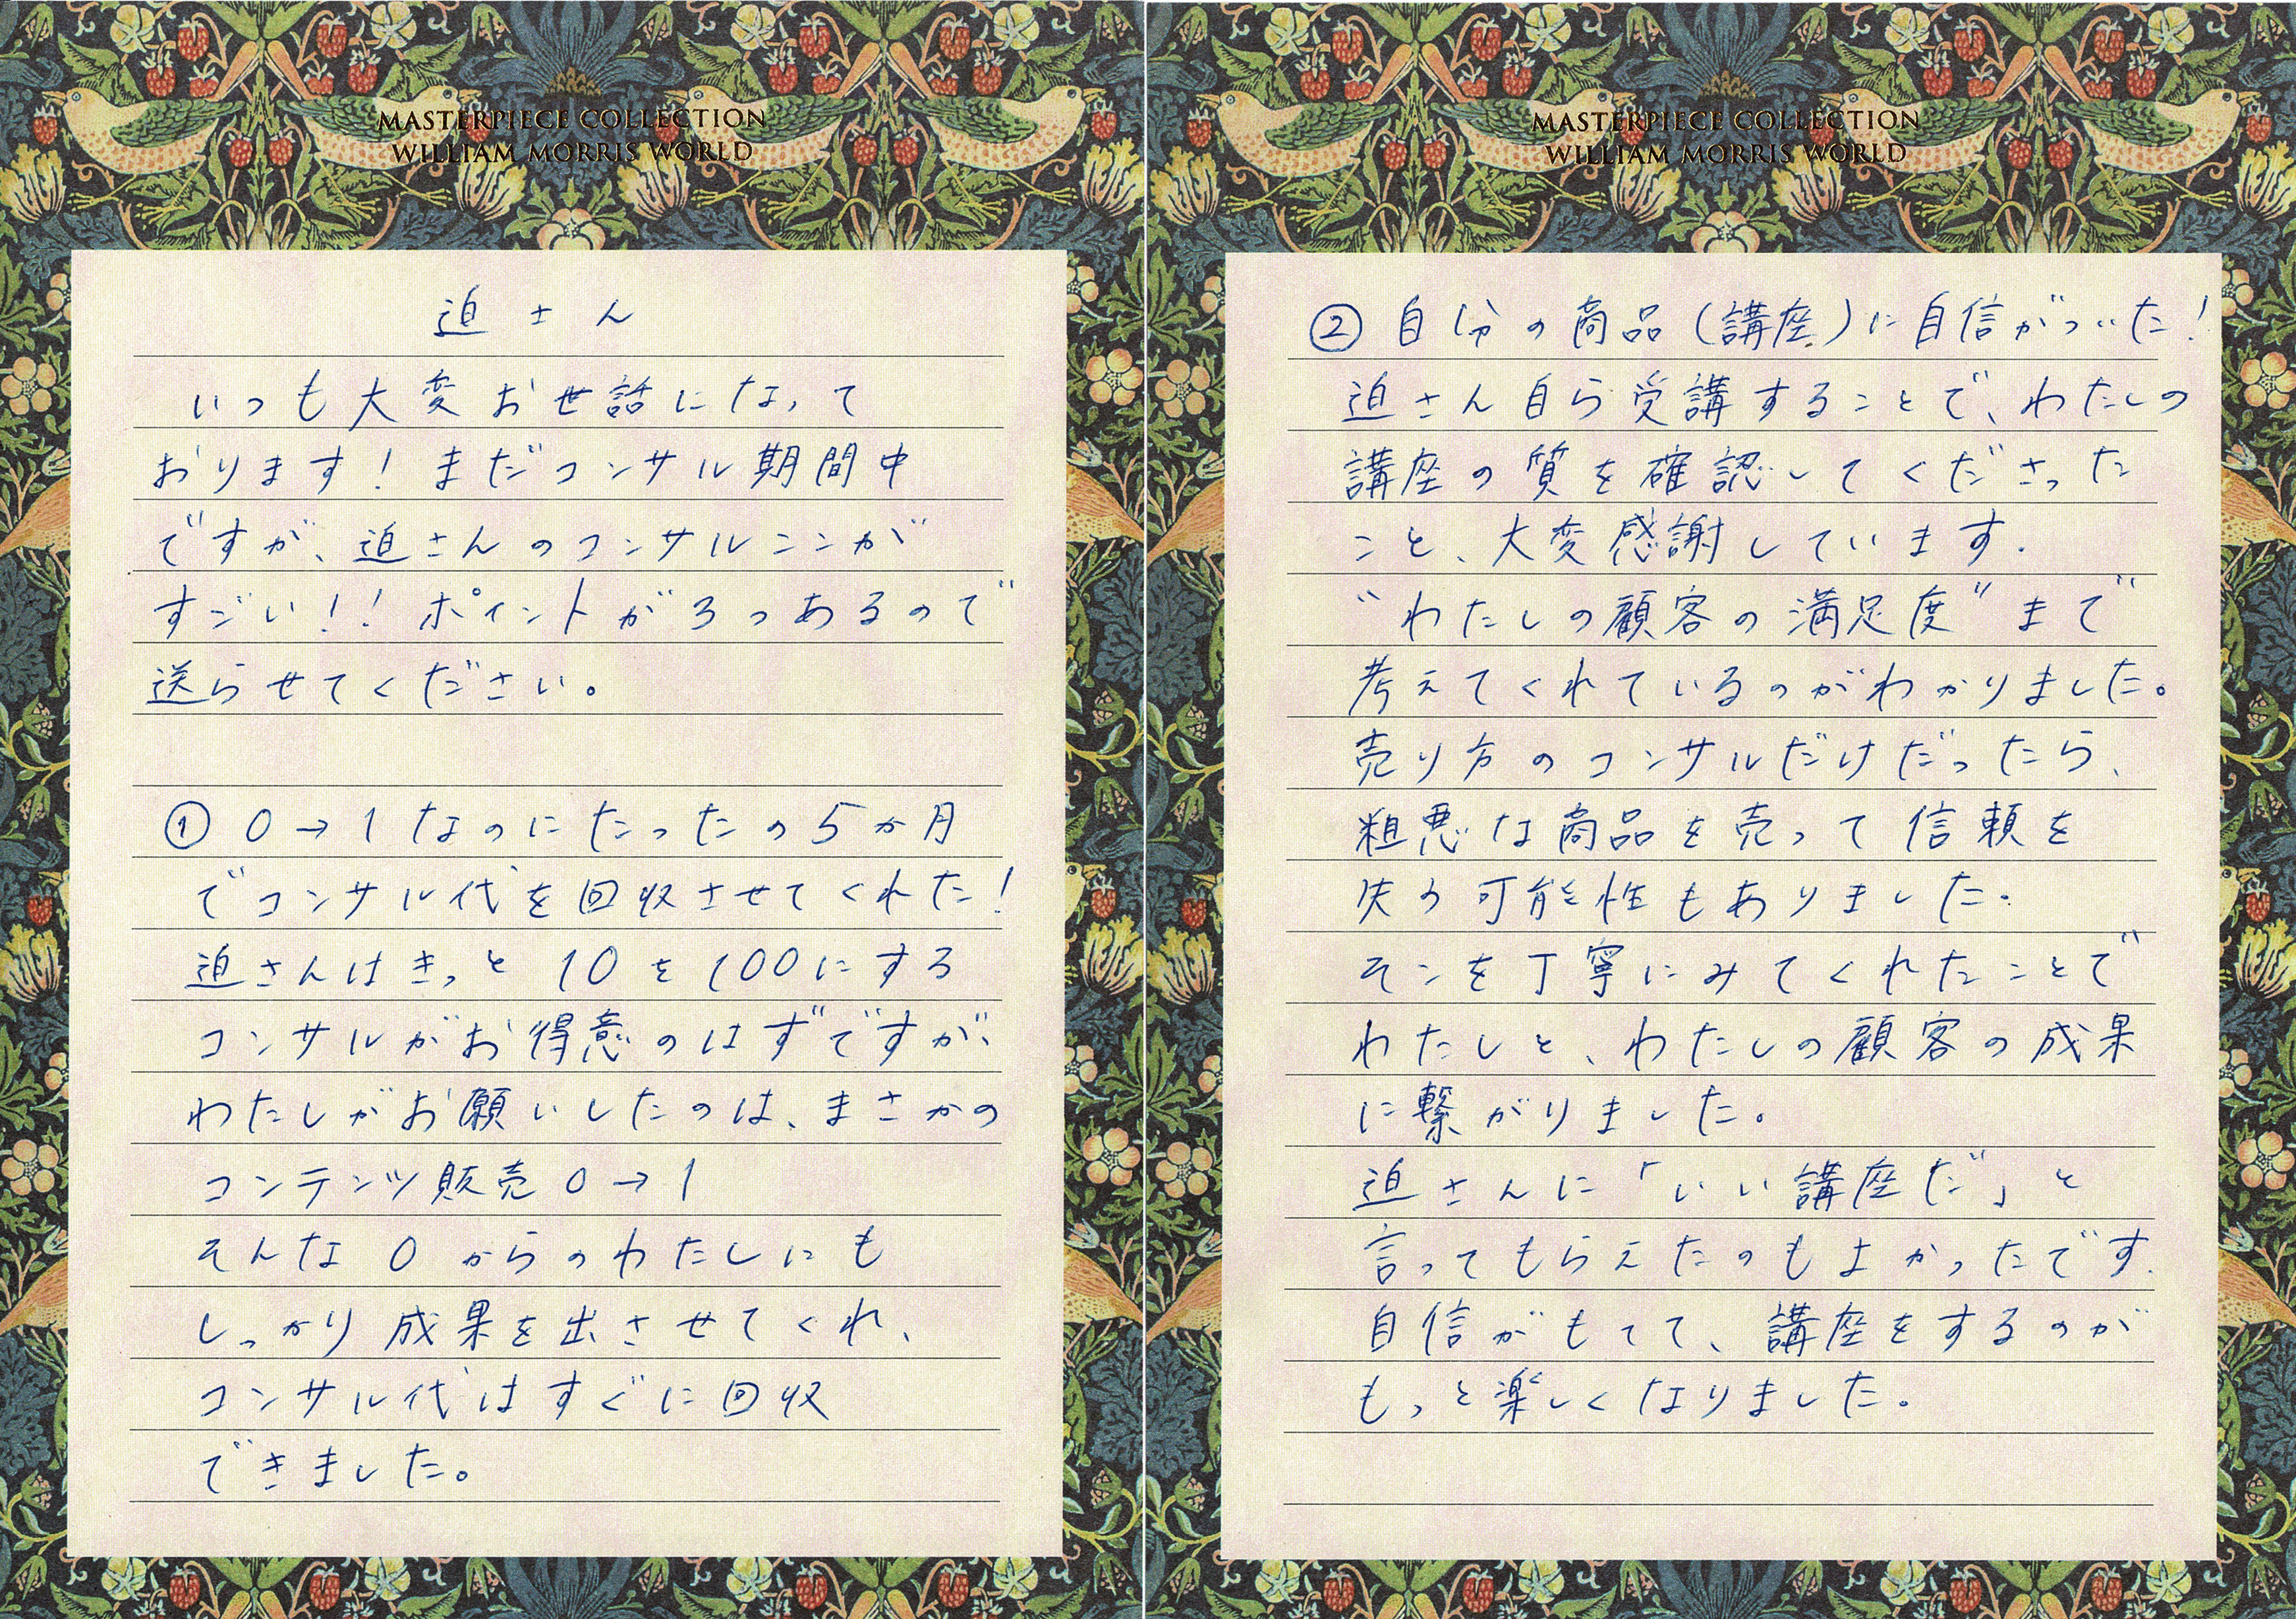 MASTERPIECE COLLECTION
WILLIAM MORRIS WORLD
迫さん
いつも大変お世話になって
おります！まだコンサル期間中
ですが、迫さんのコンサルここが
すごい！！ポイントが3つあるので
送らせてください。
① 0→1なのにたったの5か月
でコンサル代を回収させてくれた！
迫さんはきっと10を100にする
コンサルがお得意のはずですが、
わたしがお願いしたのは、まさかの
コンテンツ販売0→1
そんな0からのわたしにも
しっかり成果を出させてくれ、
コンサル代はすぐに回収
できました。
MASTERPIECE COLLECTION
WILLIAM MORRIS WORLD
② 自分の商品(講座)に自信がついた！
迫さん自ら受講することで、わたしの
講座の質を確認してくださった
こと、大変感謝しています.
“わたしの顧客の満足度”まで
考えてくれているのがわかりました。
売り方のコンサルだけだったら、
粗悪な商品を売って信頼を
失う可能性もありました.
そこを丁寧にみてくれたことで
わたしと、わたしの顧客の成果
に繋がりました。
迫さんに「いい講座だ」と
言ってもらえたのもよかったです.
自信がもてて、講座をするのが
もっと楽しくなりました.